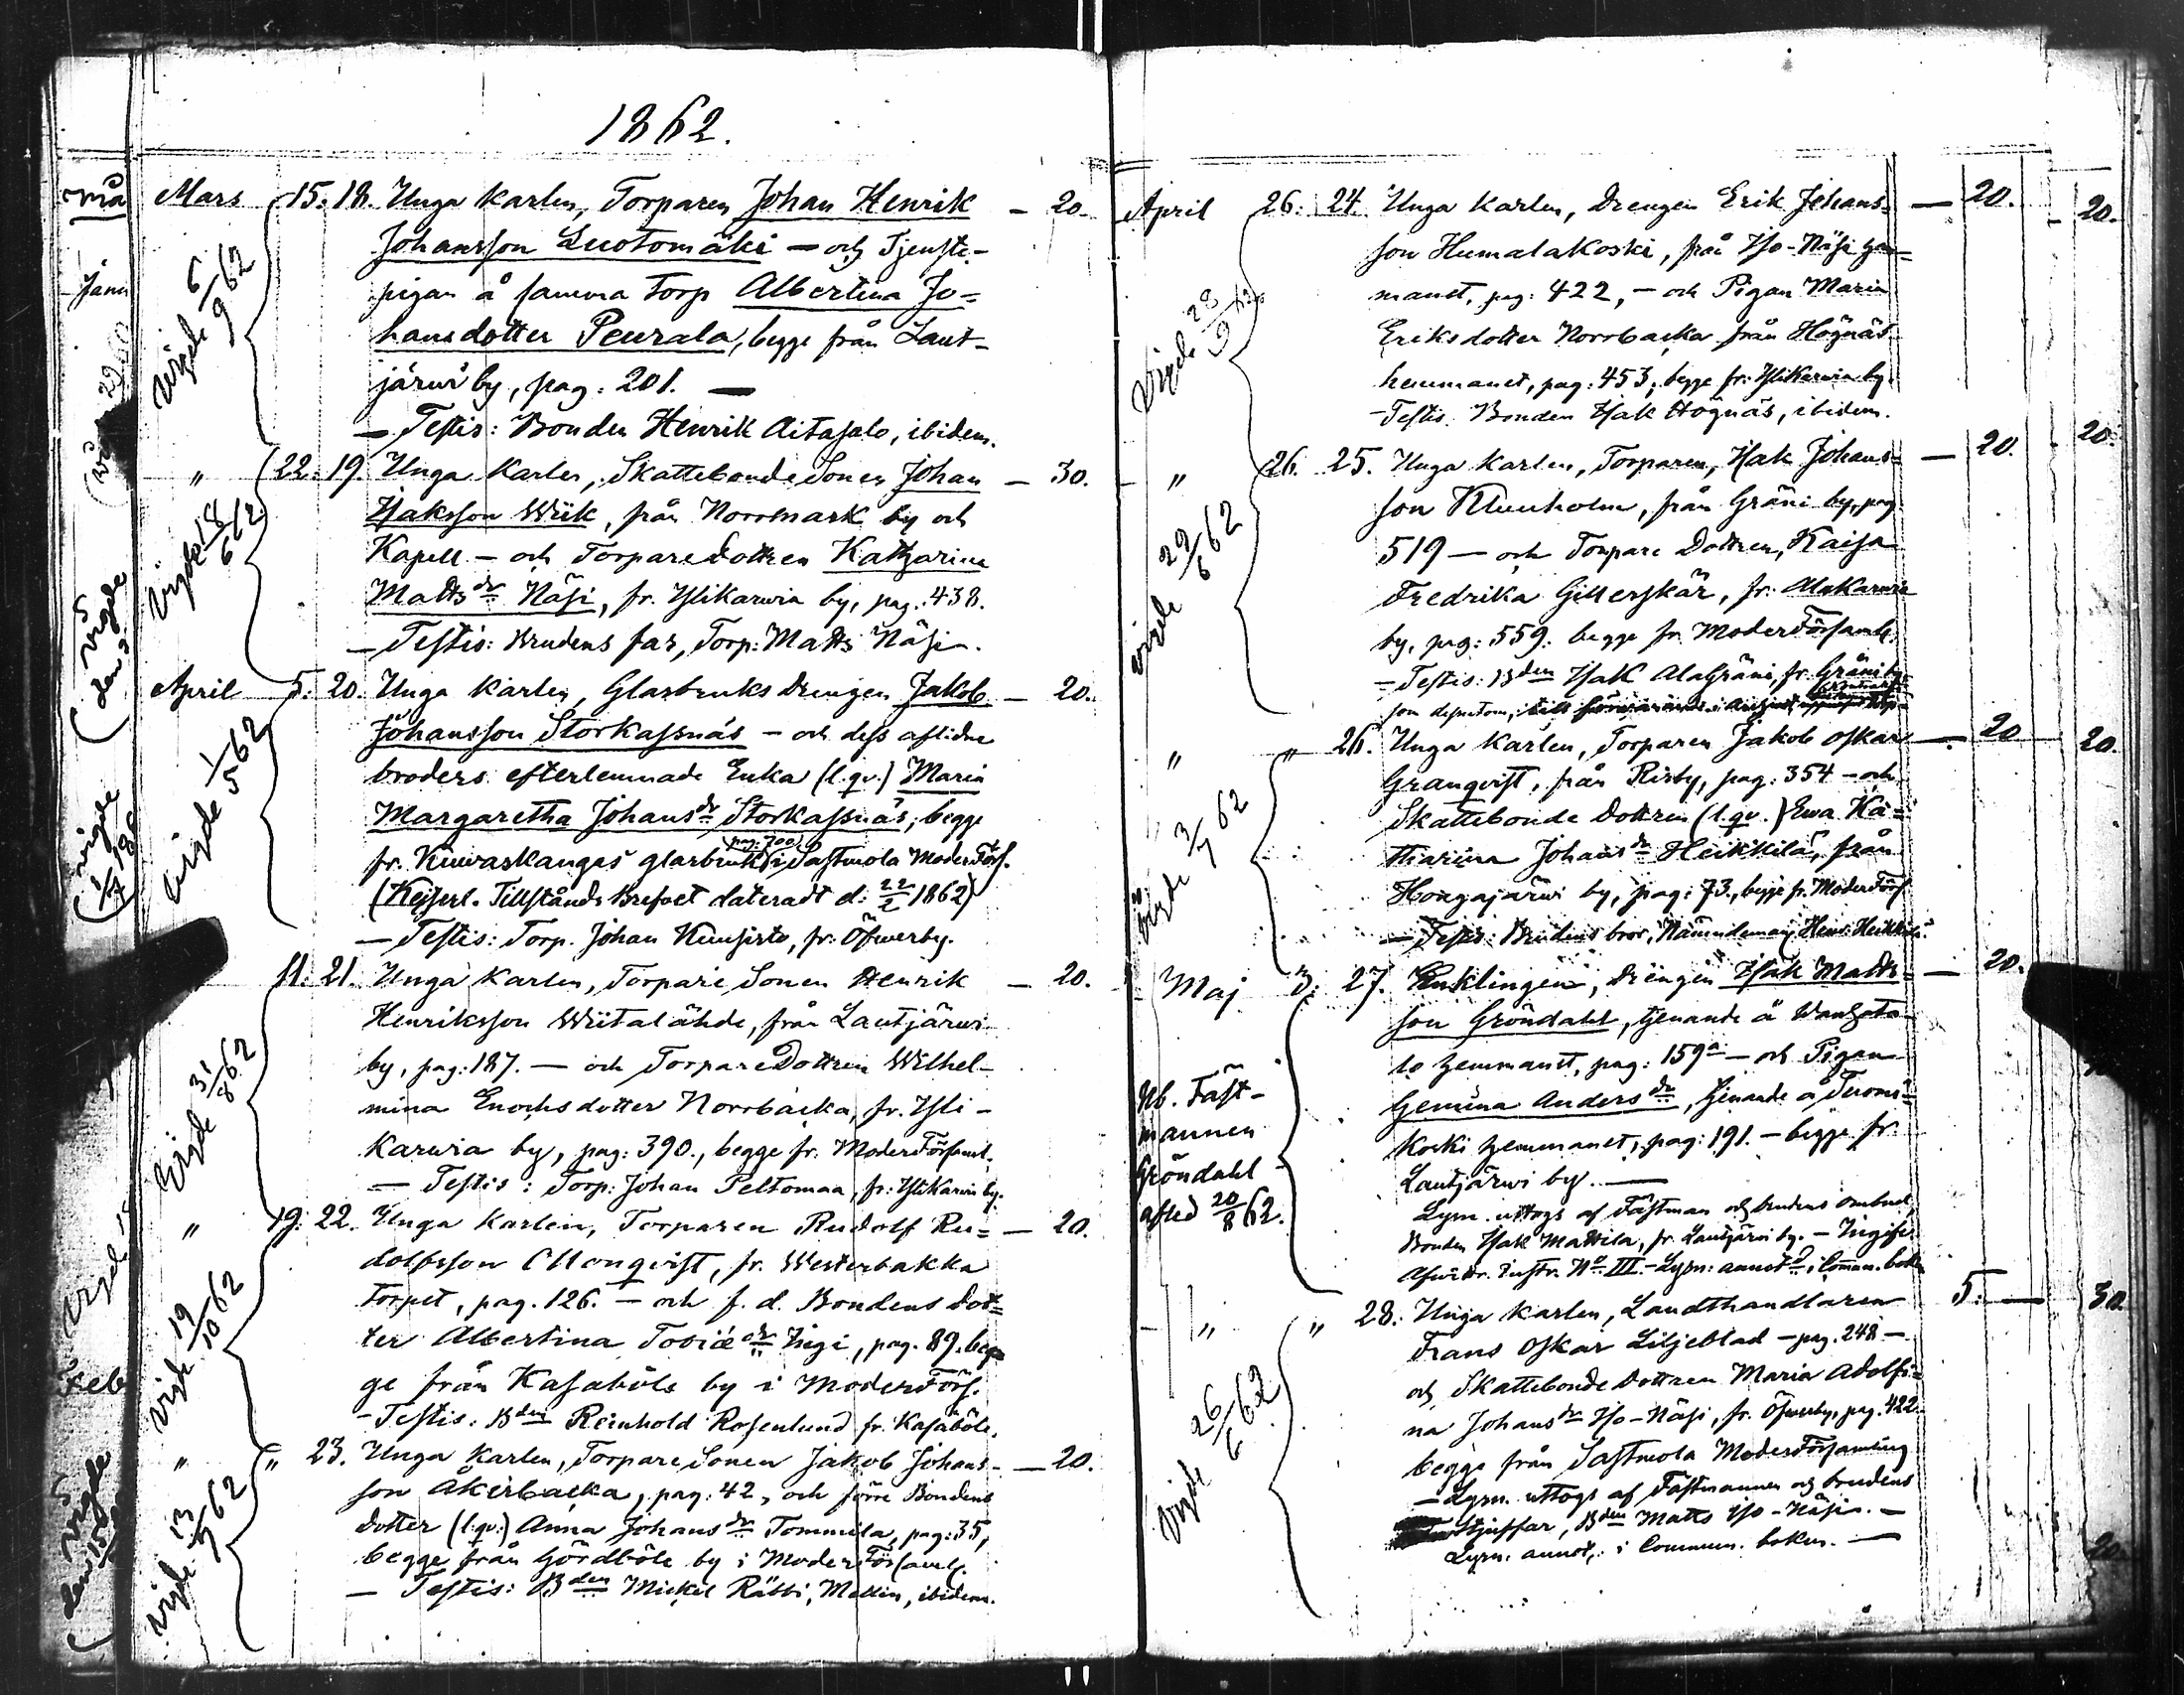 1862.
Mars 15. 18. Unga Karlen, Torparen Johan Henrik — 20.
Johansson Luotomäki — och Tjenste-
pigan å samma Torp Albertina Jo=
hansdotter Peurala, begge från Laut-
järwi by, pag: 201. —
— Testis: Bonden Henrik Aitasalo, ibidem.
Vigde 6/9 62
" 22. 19. Unga Karlen, SkattebondeSonen Johan — 30.
Isaksson Wiik, från Norrmark by och
Kapell — och TorpareDottren Katharina
Matts dr Näsi, fr. Ylikarwia by, pag. 438.
— Testis: Brudens far, Torp: Matts Näsi.
Vigde 18/6 62
April 5. 20. Unga Karlen, Glasbruksdrengen Jakob — 20.
Johansson Storkassnäs — och dess aflidne
broders efterlemnade Enka (l.qv.) Maria
Margaretha Johans dr Storkassnäs, begge
fr. Kiuwaskangas glasbruk (pag: 700) i Sastmola ModerFörs.
(Kejserl. Tillstånds Brefvet dateradt d: 22/2 1862)
— Testis: Torp. Johan Kuusisto, fr: Öfwerby.
Vigde 1/5 62
11. 21. Unga Karlen, TorpareSonen Henrik — 20.
Henriksson Wiitalähde, från Lautjärwi
by, pag: 187. — och TorpareDottren Wilhel-
mina Enochsdotter Norrbacka, fr. Yli-
Karwia by, pag: 390., begge fr. ModerFörsaml.
— Testis: Torp: Johan Peltomaa, fr: YliKarwia by.
Vigde 31/8 62
" 19. 22. Unga Karlen, Torparen Rudolf Ru= — 20.
dolfsson Monqvist, fr. Westerbakka
Torpet, pag. 126. — och f. d. Bondens Dot=
ter Albertina Tobiæ dr Sigi, pag. 89. beg
ge från Kasaböle by i ModerFörs.
— Testis: Bden Reinhold Rosenlund fr. Kasaböle.
Vigde 19/10 62
" " 23. Unga Karlen, TorpareSonen Jakob Johans- — 20.
son Åkerbacka, pag: 42, och förre Bondens
dotter (l.qv:) Anna Johans dr Tommila, pag: 35,
begge från Gördböle by i ModerFörsaml.
— Testis: Bden Mickel Rätti, Mellin, ibidem.
Vigde 13/7 62
April 26. 24. Unga Karlen, Drengen Erik Johans= — 20. 20.
son HumalaKoski, från Iso-Näsi hem=
manet, pag: 422, — och Pigan Maria
Eriksdotter Norrbacka från Högnäs
hemmanet, pag: 453, begge fr: YliKarwia by.
— Testis. Bonden Isak Högnäs, ibidem.
Vigde 28/9
" 26. 25. Unga Karlen, Torparen, Isak Johans= — 20. 20.
son Klemholm, från Gräni by, pag
519 — och Torpare Dottren, Kaisa
Fredrika Gillerskär, fr. AlaKarwia
by, pag: 559. begge fr. ModerFörsaml.
— Testis: Bden Isak AlaGräni, fr. Gräni by,
vigde 22/6 62
" " 26. Unga Karlen, Torparen Jakob Oskar — 20 20.
Granqvist, från Risby, pag: 354 — och
Skattebonde Dottren (l.qv.) Ewa Ka=
tharina Johans dr Heikkilä, från
Hongajärwi by, pag: 73., begge fr. ModerFörs.
— Testis: Brudens bror, Nämndeman Henr. Heikkilä.
Vigde 3/7 62
Maj 3. 27. Enklingen, Drengen Isak Matts= — 20.
son Gröndahl, tjenande å Wanhata=
lo hemmanet, pag: 159a — och Pigan
Gemina Anders dr, tjenande å Tuomi=
koski hemmanet, pag: 191. — begge fr.
Lautjärwi by. —
Lysn. uttogs af Fästman och brudens ombud,
Bonden Isak Mattila, fr. Lautjärwi by.
Nb. Fäst-
mannen
Gröndahl
afled 20/8 62.
" " 28. Unga Karlen, Landthandlaren 5. — 30.
Frans Oskar Liljeblad — pag. 248 —
och Skattebonde Dottren Maria Adolfi=
na Johans dr Iso-Näsi, fr. Öfwerby, pag. 422.
begge från Sastmola ModerFörsamling
— Lysn. uttogs af Fästmannen och brudens
Styffar, Bden Matts Iso-Näsi. —
Lysn. annot. i Commun. boken. —
Vigde 26/6 62